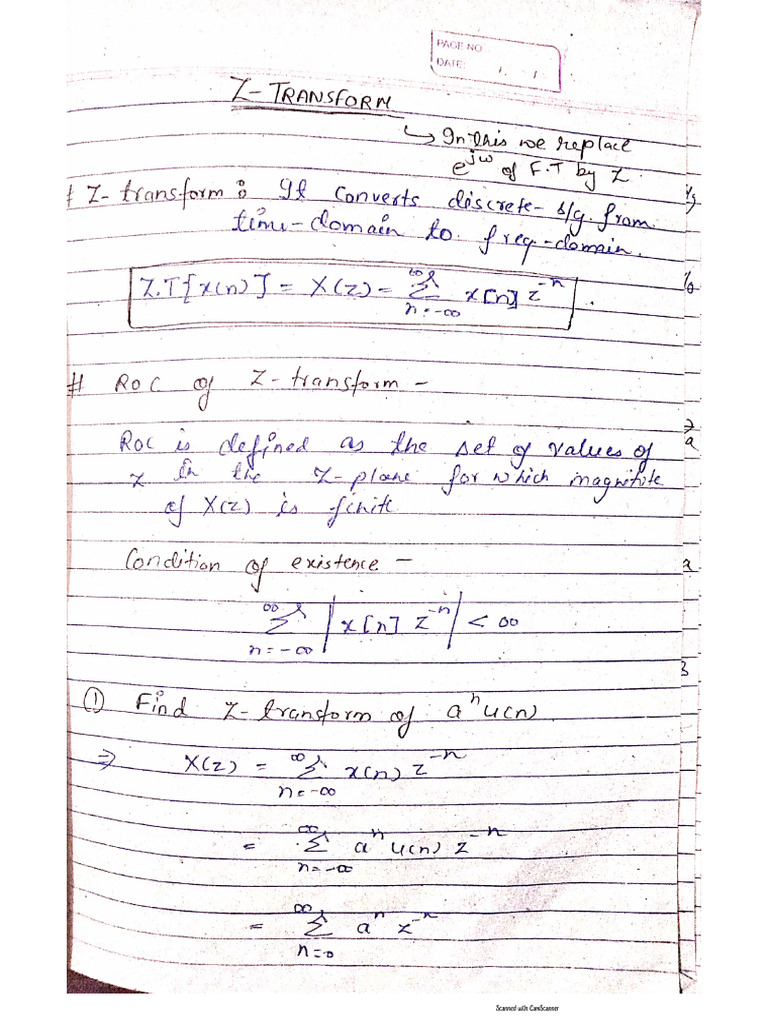 PAGE NO
DATE: / /
Z-TRANSFORM
↳ In this we replace
e^jω of F.T by Z
# Z-transform : It converts discrete- s/g. from
time-domain to freq-domain.
Z.T{x(n)} = X(z) = ∞Σn=-∞ x[n] z^-n .
# ROC of Z-transform -
ROC is defined as the set of values of
z in the z-plane for which magnitute
of X(z) is finite
Condition of existence -
∞Σn=-∞ |x[n] z^-n| < ∞
① Find z-transform of a^n u(n)
⇒ X(z) = ∞Σn=-∞ x(n) z^-n
= ∞Σn=-∞ a^n u(n) z^-n
= ∞Σn=0 a^n z^-n
Scanned with CamScanner